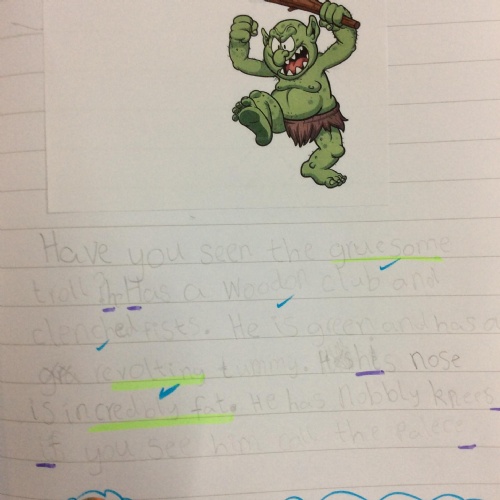 Have you seen the gruesome
troll. It Has a wooden club and
clenched fists. He is green and has a
revolting tummy. His nose
is incredibly fat. He has nobbly knees
If you see him call the